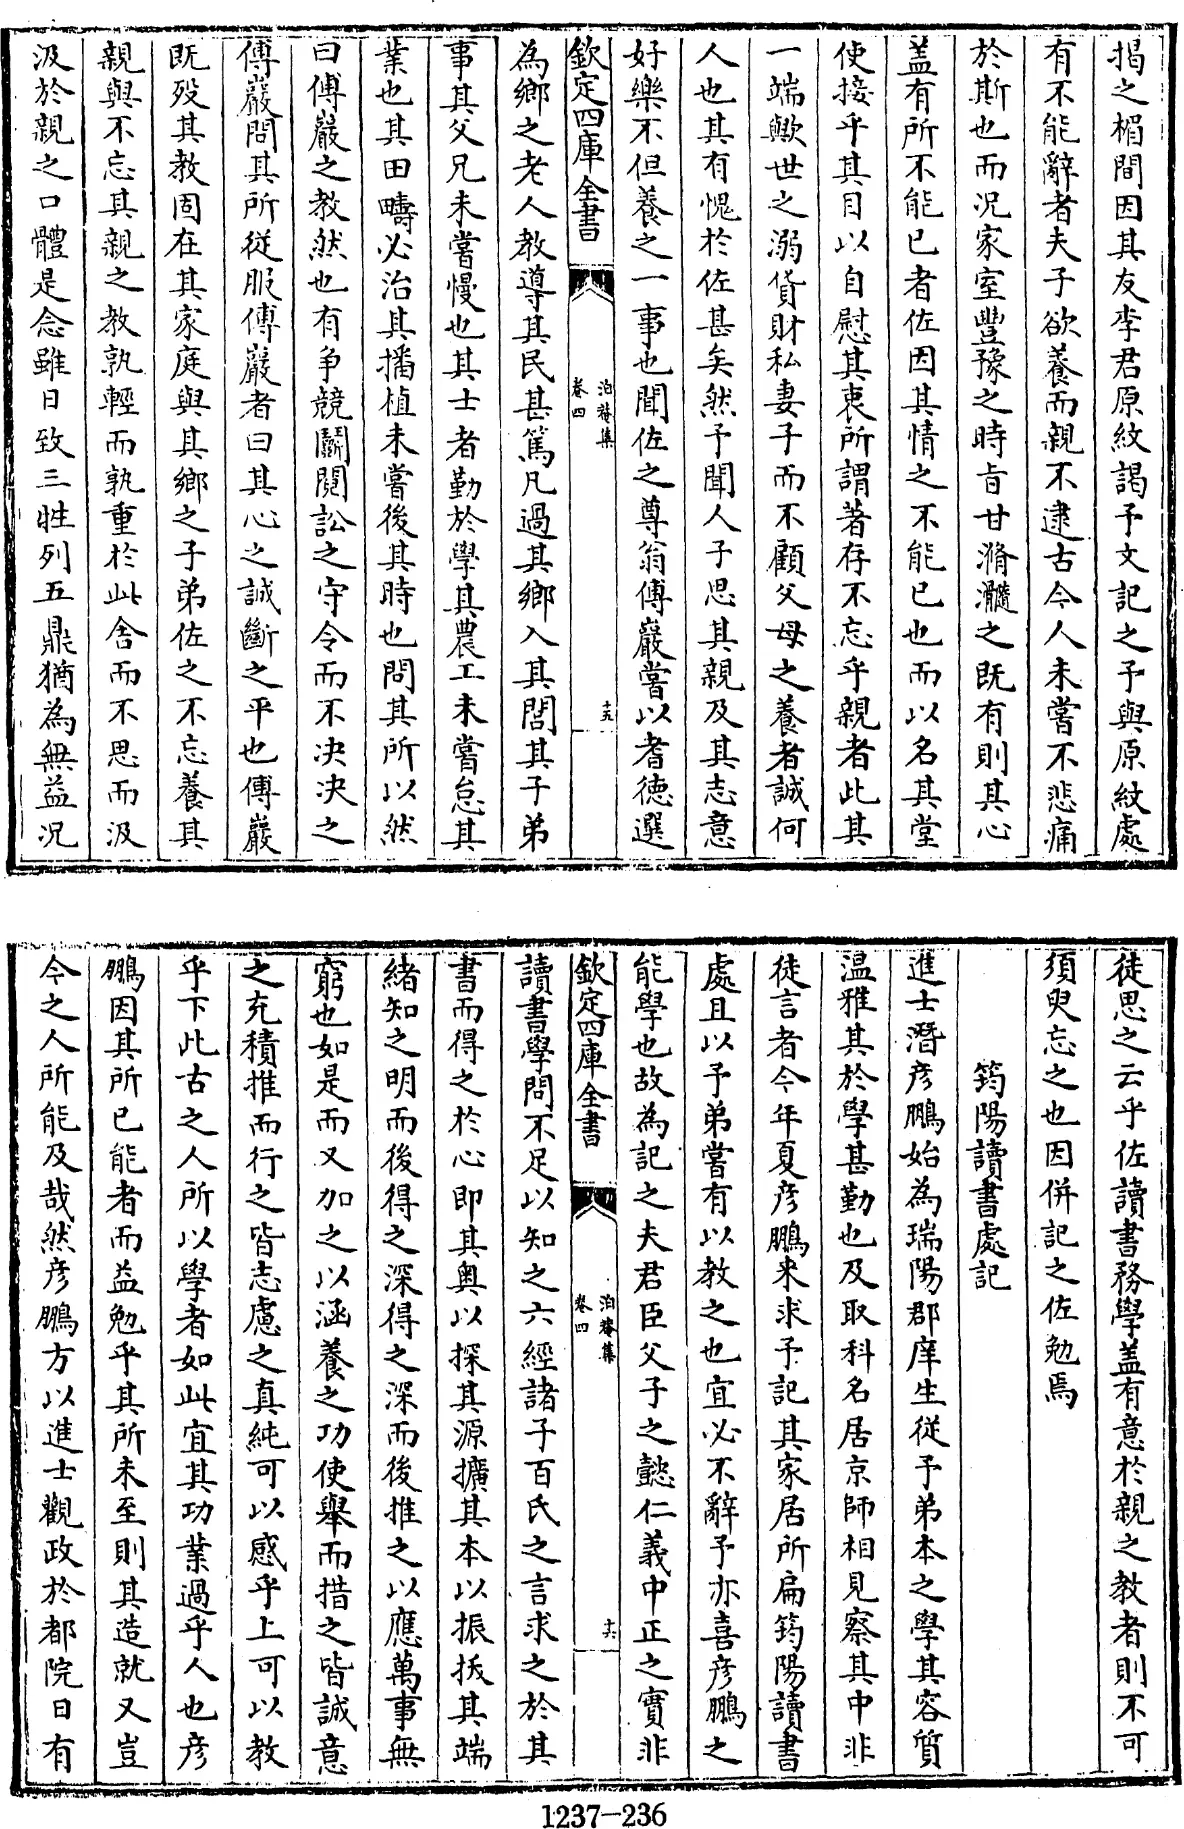 揭之楣間因其友李君原紋謁予文記之予與原紋處
有不能辭者夫子欲養而親不逮古今人未嘗不悲痛
於斯也而况家室豐豫之時旨甘滫瀡之既有則其心
盖有所不能已者佐因其情之不能已也而以名其堂
使接乎其目以自慰其衷所謂著存不忘乎親者此其
一端歟世之溺貨財私妻子而不顧父母之養者誠何
人也其有愧於佐甚矣然予聞人子思其親及其志意
好樂不但養之一事也聞佐之尊翁傅巖嘗以耆德選
欽定四庫全書
泊菴集
卷四
十五
為鄉之老人教導其民甚篤凡過其鄉入其閭其子弟
事其父兄未嘗慢也其士者勤於學其農工未嘗怠其
業也其田疇必治其播植未嘗後其時也問其所以然
曰傅巖之教然也有争競鬭閱訟之守令而不决决之
傅巖問其所從服傅巖者曰其心之誠斷之平也傅巖
既殁其教固在其家庭與其鄉之子弟佐之不忘養其
親與不忘其親之教孰輕而孰重於此舍而不思而汲
汲於親之口體是念雖日致三牲列五鼎猶為無益况
徒思之云乎佐讀書務學盖有意於親之教者則不可
須臾忘之也因併記之佐勉焉
筠陽讀書處記
進士潛彦鵬始為瑞陽郡庠生從予弟本之學其容質
温雅其於學甚勤也及取科名居京師相見察其中非
徒言者今年夏彦鵬来求予記其家居所扁筠陽讀書
處且以予弟嘗有以教之也宜必不辭予亦喜彦鵬之
能學也故為記之夫君臣父子之懿仁義中正之實非
欽定四庫全書
泊菴集
卷四
十六
讀書學問不足以知之六經諸子百氏之言求之於其
書而得之於心即其奥以探其源擴其本以振拔其端
緒知之明而後得之深得之深而後推之以應萬事無
窮也如是而又加之以涵養之功使舉而措之皆誠意
之充積推而行之皆志慮之真純可以感乎上可以教
乎下此古之人所以學者如此宜其功業過乎人也彦
鵬因其所已能者而益勉乎其所未至則其造就又豈
今之人所能及哉然彦鵬方以進士觀政於都院日有
1237-236